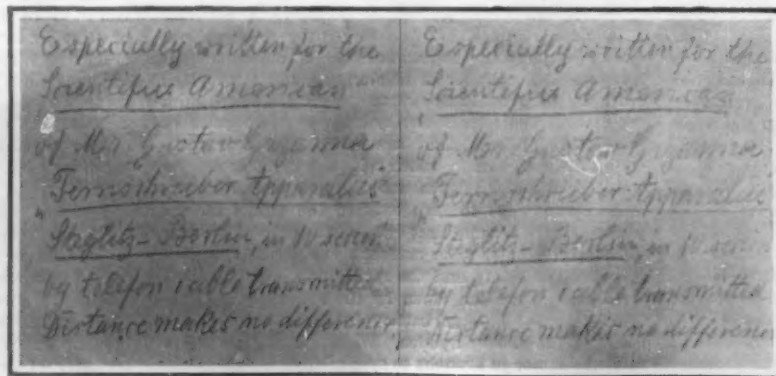 Especially written for the
Scientific American"
of Mr. Gustav Grzanna
"Fernschreiber Apparatus"
"Steglitz-Berlin, in 10 secon
by telefon cable transmitted
Distance makes no difference
Especially written for the
"Scientific American
of Mr. Gustav Grzanna
"Fernschreiber Apparatus"
"Steglitz-Berlin, in 10 secon
by telefon cable transmitted
Distance makes no difference